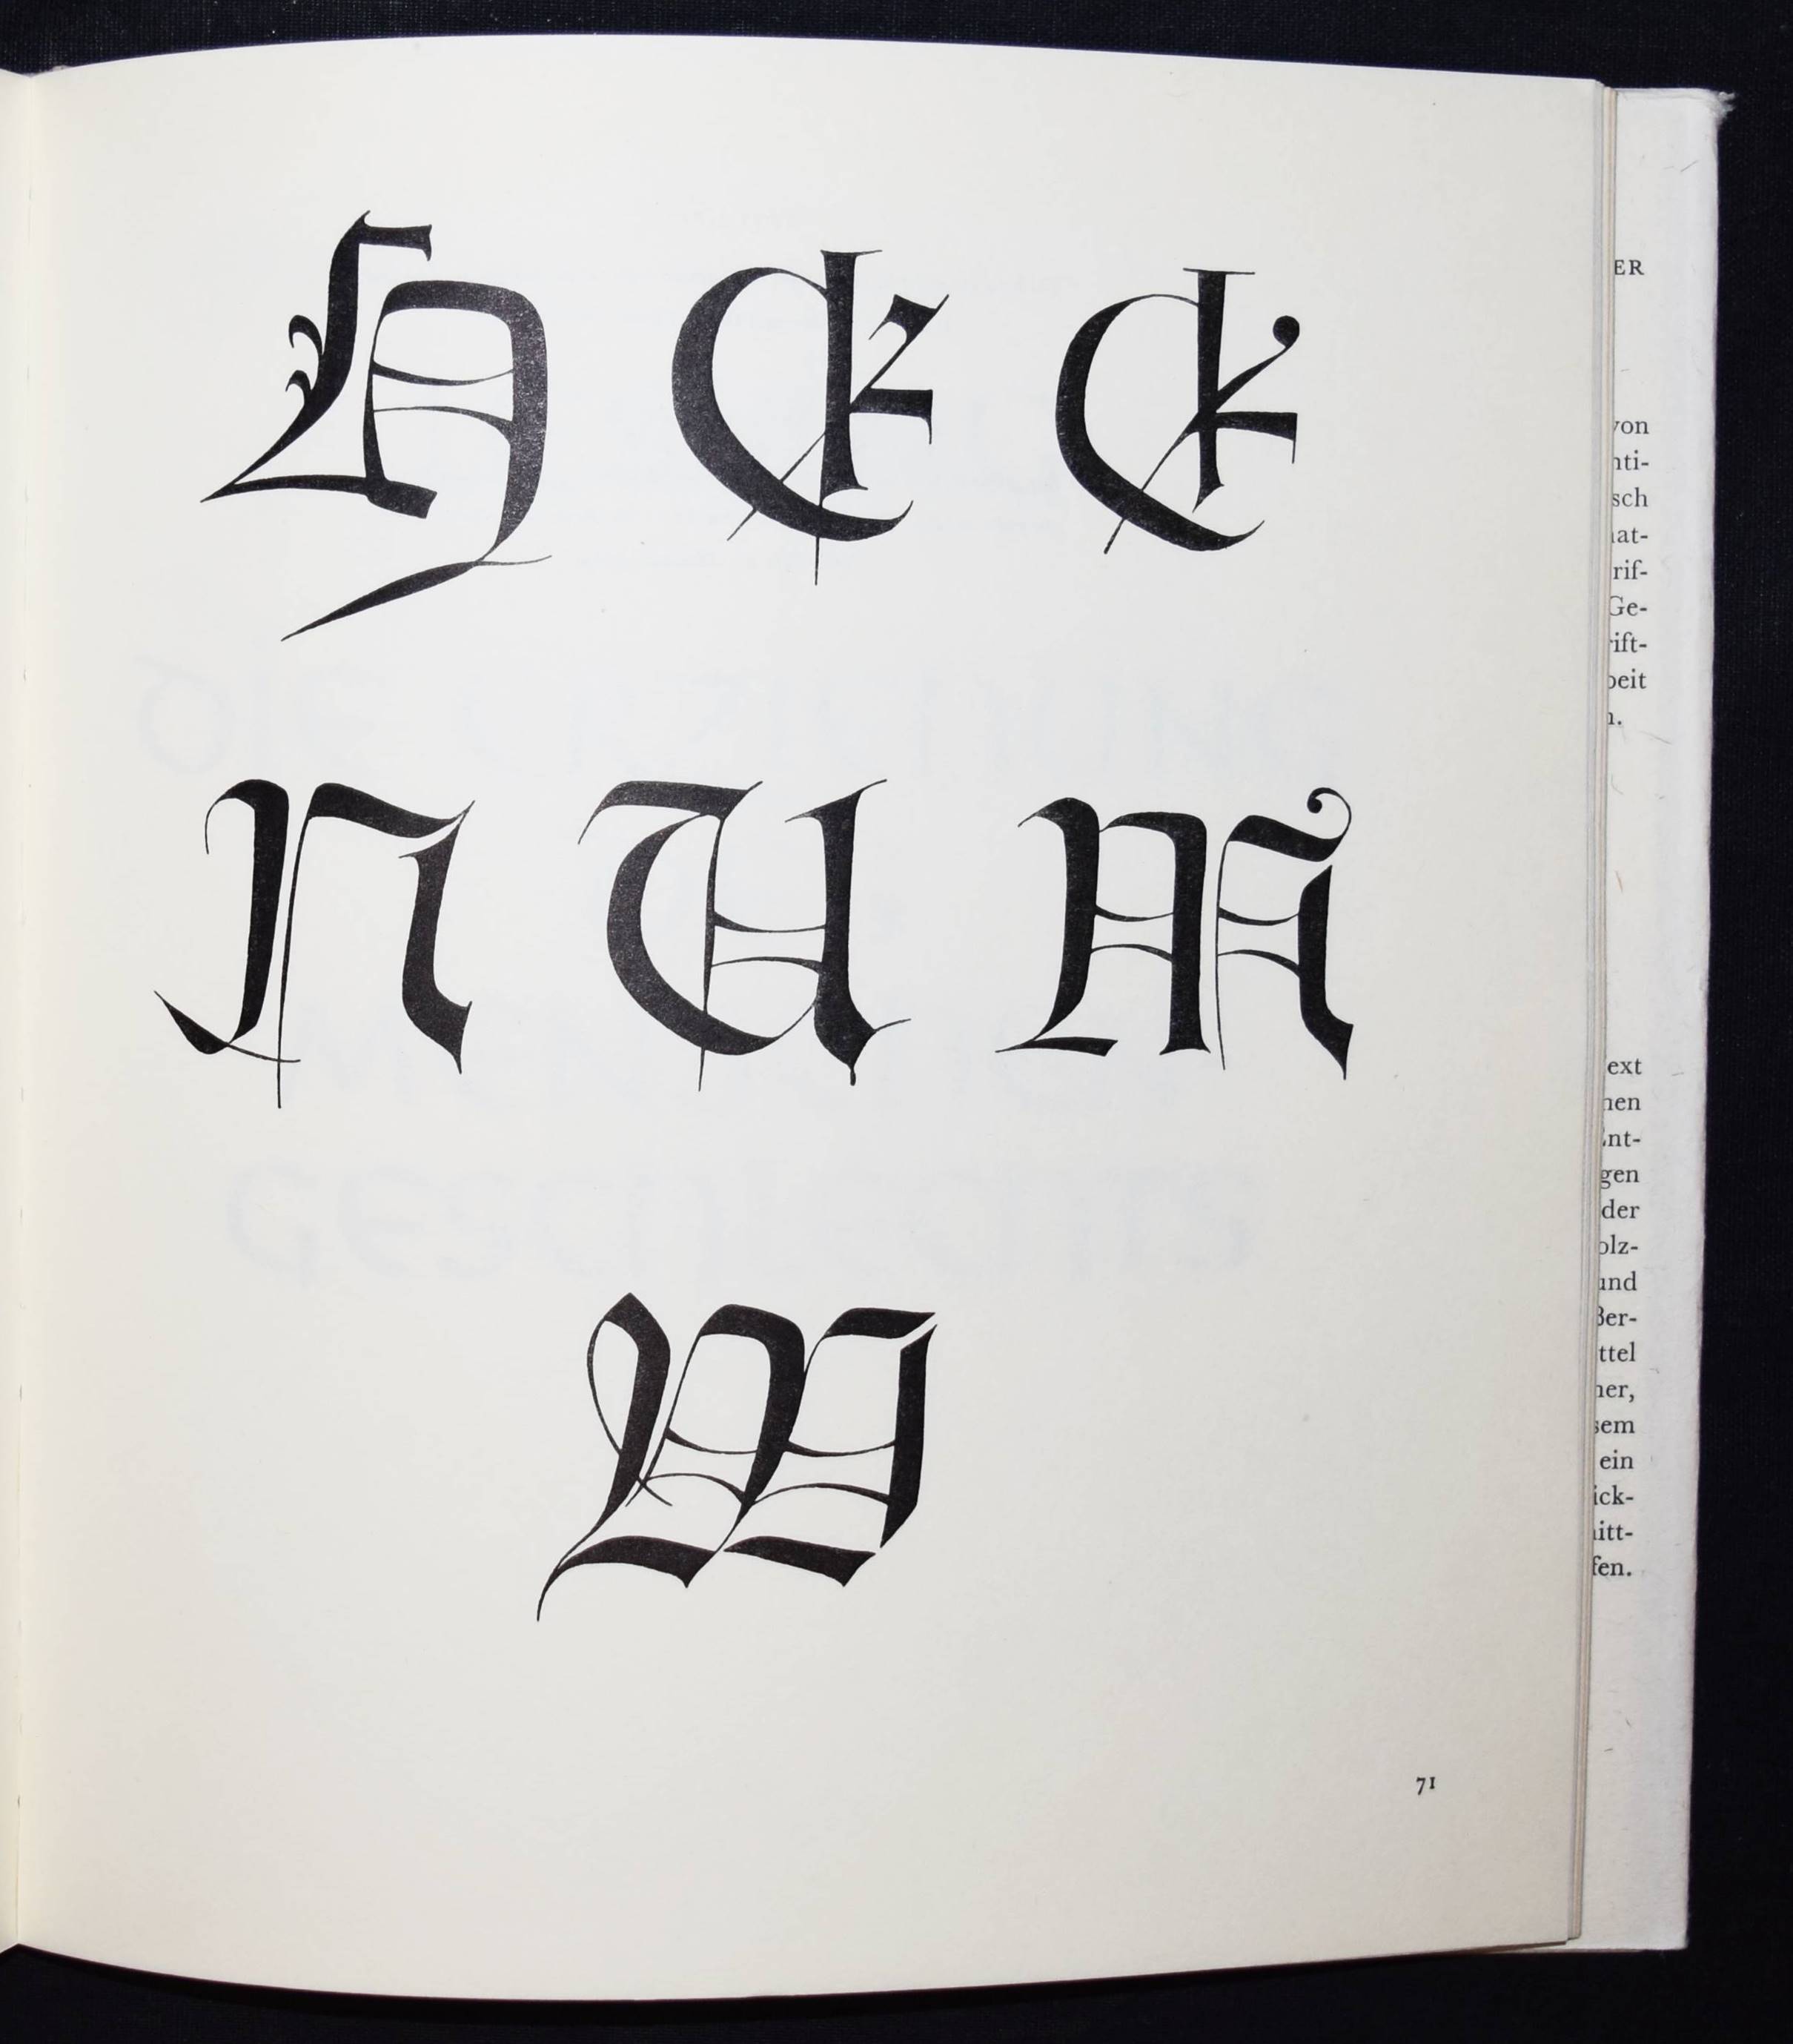 H E E
N U M
W
71
ER
von
nti-
sch
at-
rif-
Ge-
rift-
beit
n.
ext
nen
Ent-
gen
der
olz-
und
ttel
her,
sem
ein
ick-
nitt-
fen.